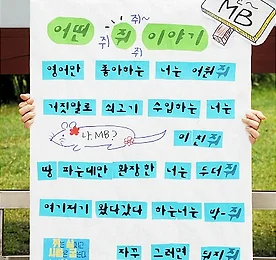 쥐~
MB
어떤 쥐 이야기
쥐
쥐
영어만 좋아하는 너는 어륀쥐
거짓말로 쇠고기 수입하는 너는
나, MB?
미친쥐
땅 파는데만 환장한 너는 두더쥐
여기저기 왔다갔다 하는너는 박쥐
자꾸 그러면 뒤지쥐